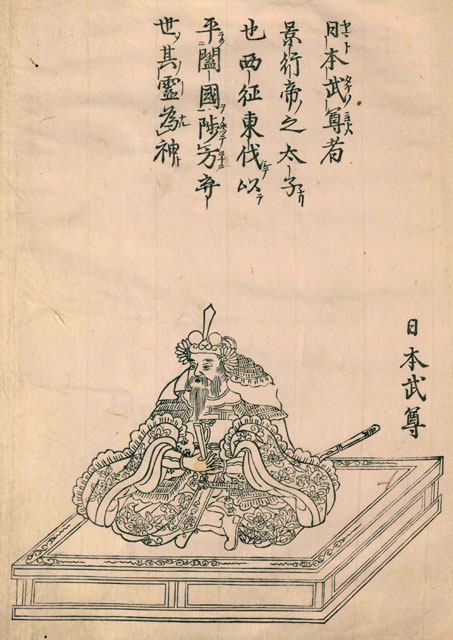 日本武尊者
景行帝之太子
也西征東伐以
平闔國陟方弃
世其靈為神
日本武尊